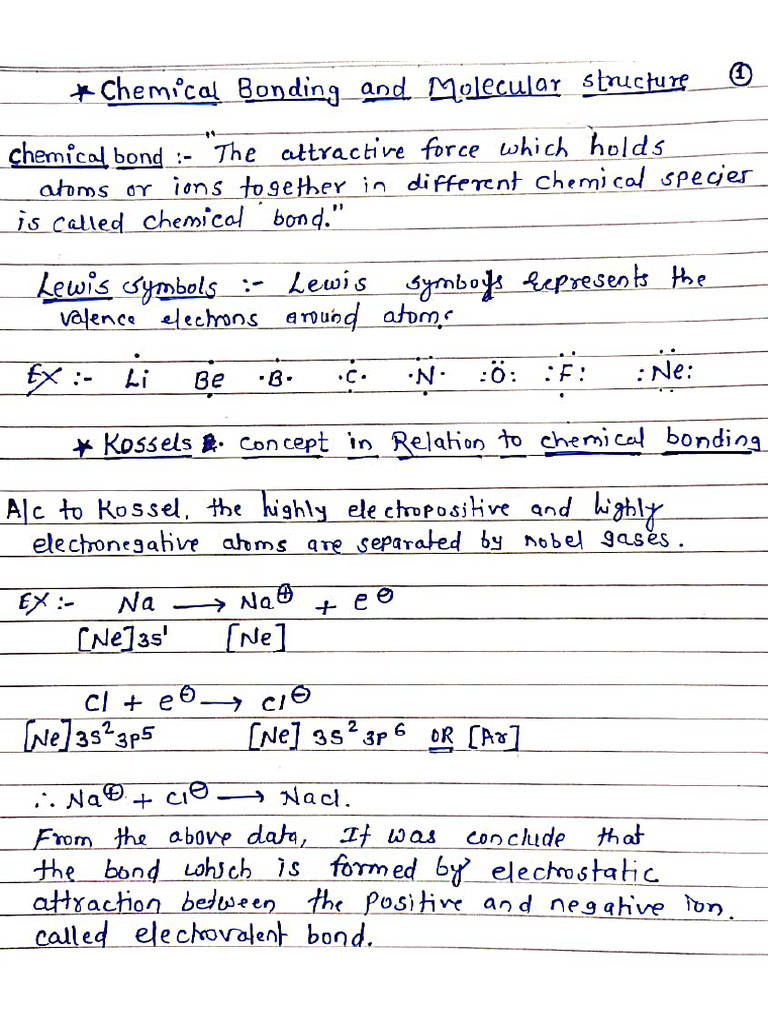 * Chemical Bonding and Molecular structure ①
Chemical bond :- "The attractive force which holds
atoms or ions together in different chemical species
is called chemical bond."
Lewis symbols :- Lewis symbols represents the
valence electrons around atom.
EX :- Li Be ·B· ·C· ·N· :Ö: :F: :Ne:
* Kossels concept in Relation to chemical bonding
A/c to Kossel, the highly electropositive and highly
electronegative atoms are separated by nobel gases.
EX :- Na ⟶ Na⊕ + e⊖
[Ne]3s¹ [Ne]
Cl + e⊖ ⟶ Cl⊖
[Ne]3s²3p5 [Ne] 3s²3p⁶ OR [Ar]
∴ Na⊕ + Cl⊖ ⟶ Nacl.
From the above data, It was conclude that
the bond whsch is formed by electrostatic
attraction between the positive and negative ion.
called electrovalent bond.